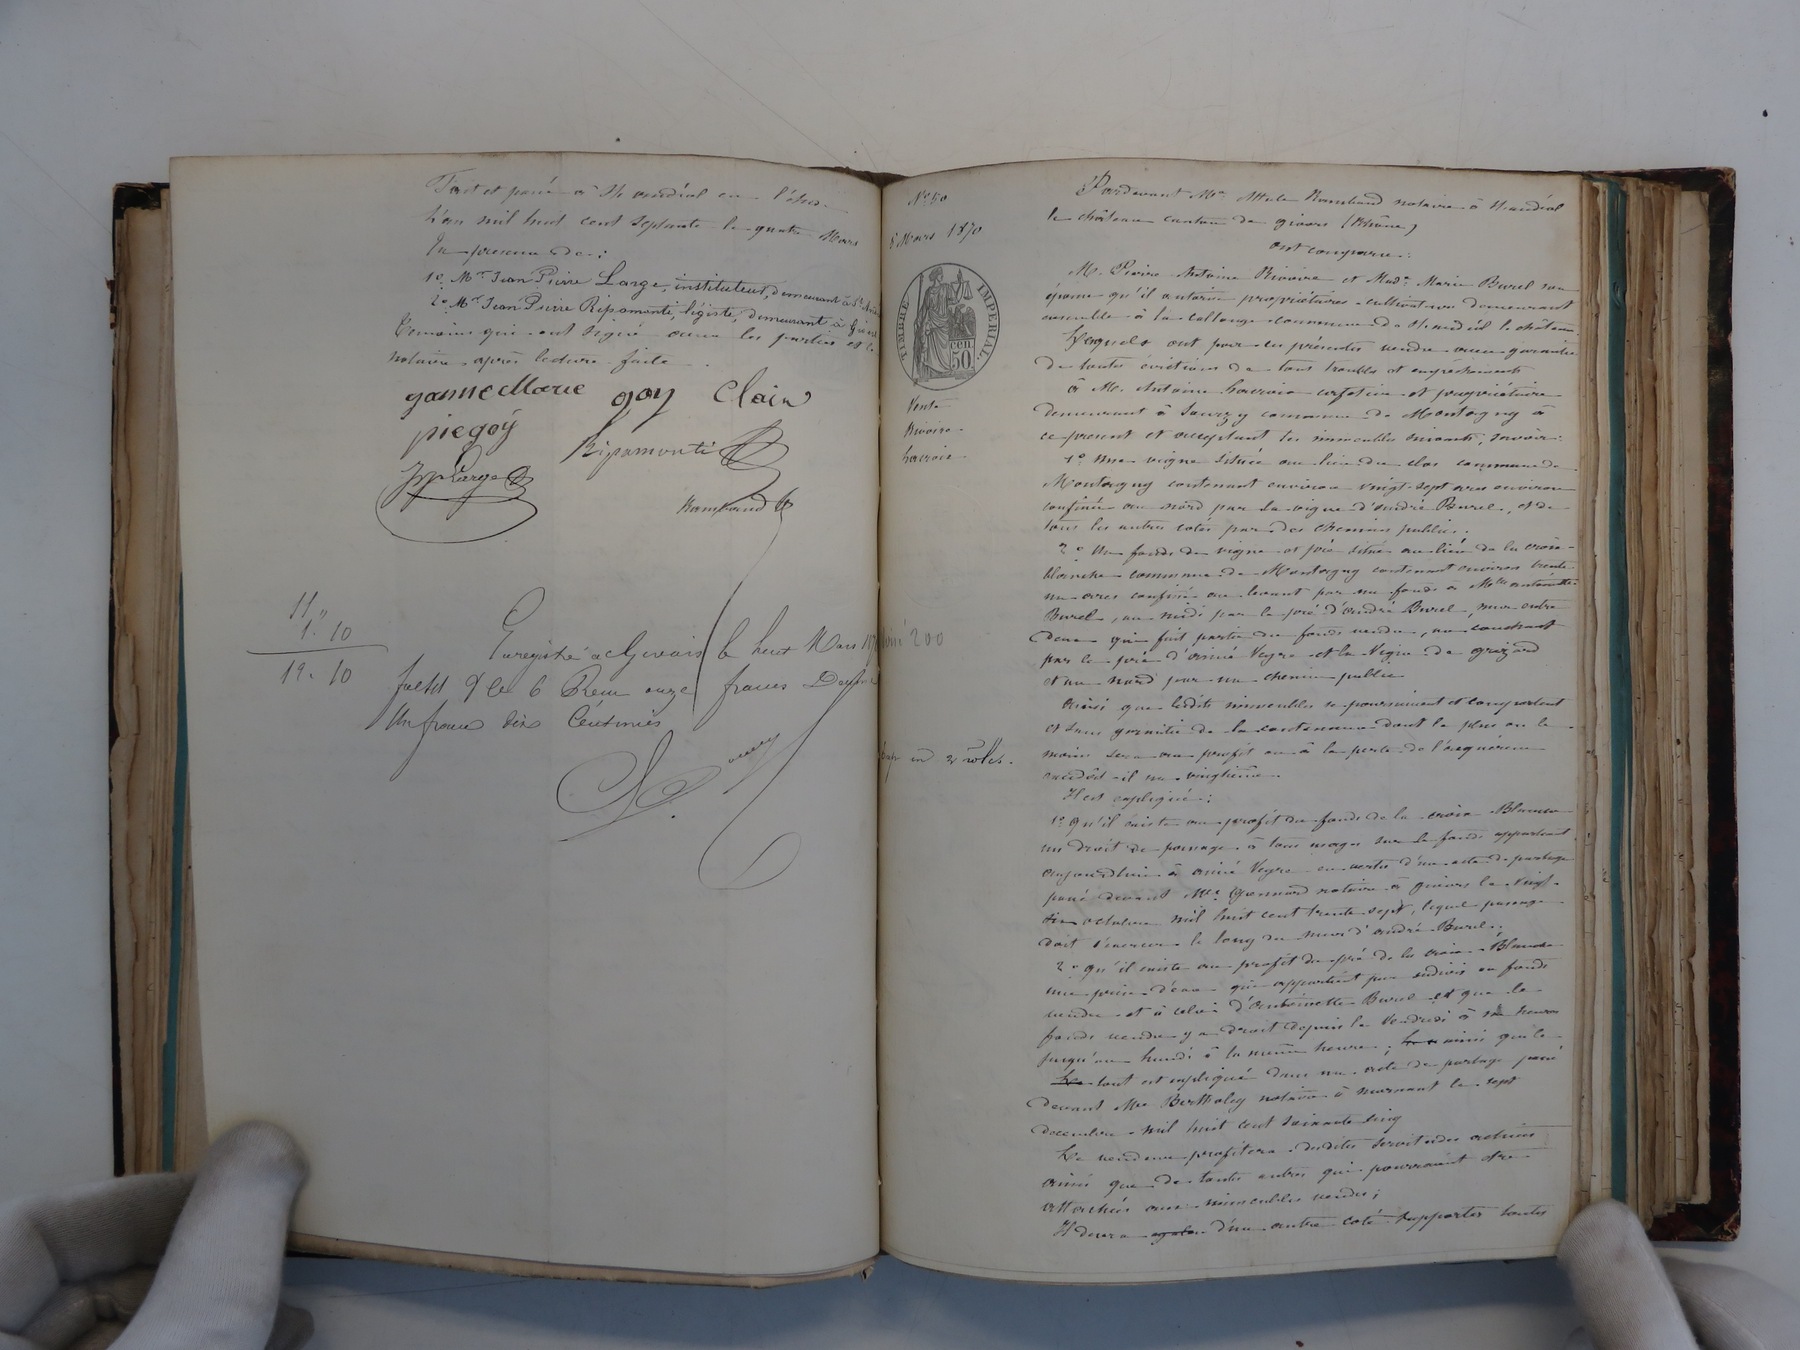 Fait et passé à St andéol en l'étude
L'an mil huit cent septante le quatre Mars
En presence de :
1º Mr Jean Pierre Large, instituteur, demeurant à St Andéol
2º Mr Jean Pierre Ripamonti, légiste, demeurant à Givors
Temoins qui ont signé avec les parties et le
notaire après lecture faite.
janne Marie goy Clair
pregoy
Ripamonti
JpLarge
Rambaud
11 "
1. 10
12. 10
Enregistré à Givors le huit Mars 1870
folio 9 Ces 6 Reçu onze francs Double
Un franc dix Centimes
Nº 50
8 Mars 1870
TIMBRE IMPERIAL
50 cen.
Vente
Rivoire
Lacroix
200
Exp en 2 rôles.
Pardevant Me Attale Rambaud notaire à St andéol
le château canton de givors (Rhône)
ont comparu :
M. Pierre Antoine Rivoire et Made Marie Burel son
épouse qu'il autorise propriétaires cultivateurs demeurant
ensemble à la Callonge commune de St andéol le château
Lesquels ont par ces présentes vendu avec garantie
de toutes évictions de tous troubles et empêchements
à M. Antoine Lacroix cafetier et propriétaire
demeurant à Sourzy commune de Montagny à
ce present et acceptant les immeubles suivants, savoir :
1º Une vigne située au lieu du clos commune de
Montagny contenant environ vingt-sept ares environ
confinée au nord par la vigne d'andré Burel, et de
tous les autres cotés par des chemins publics.
2º Un fonds de vigne et pré situé au lieu de la croix-
blanche commune de Montagny contenant environ trente
un ares confiné au levant par un fonds à Mlle antoinette
Burel, au midi par le pré d'andré Burel, mur entre
deux qui fait partie du fonds vendu, au couchant
par le pré d'aimé Veyre et la vigne de grézard
et au nord par un chemin public
Ainsi que lesdits immeubles se poursuivent et comportent
et sans garantie de la contenance dont le plus ou le
moins sera au profit ou à la perte de l'acquéreur
excédât-il un vingtième.
Il est expliqué :
1º Qu'il existe au profit du fonds de la croix Blanche
un droit de passage à tous usages sur le fonds appartenant
aujourd'hui à aimé Veyre en vertu d'un acte de partage
passé devant Me Gonnard notaire à givors le vingt-
six octobre mil huit cent trente sept, lequel passage
doit s'exercer le long du mur d'andré Burel.
2º qu'il existe au profit du pré de la croix Blanche
une prise d'eau qui appartient par indivis au fonds
vendu et à celui d'antoinette Burel et que le
fonds vendu y a droit depuis le Vendredi à six heures
jusqu'au lundi à la même heure, ainsi que le
tout est expliqué dans un acte de partage passé
devant Me Bertholey notaire à mornant le sept
decembre mil huit cent soixante cinq
Le vendeur profitera desdites servitudes actives
ainsi que de toutes autres qui pourraient être
attachées aux immeubles vendus ;
Il devra d'un autre coté supporter toutes